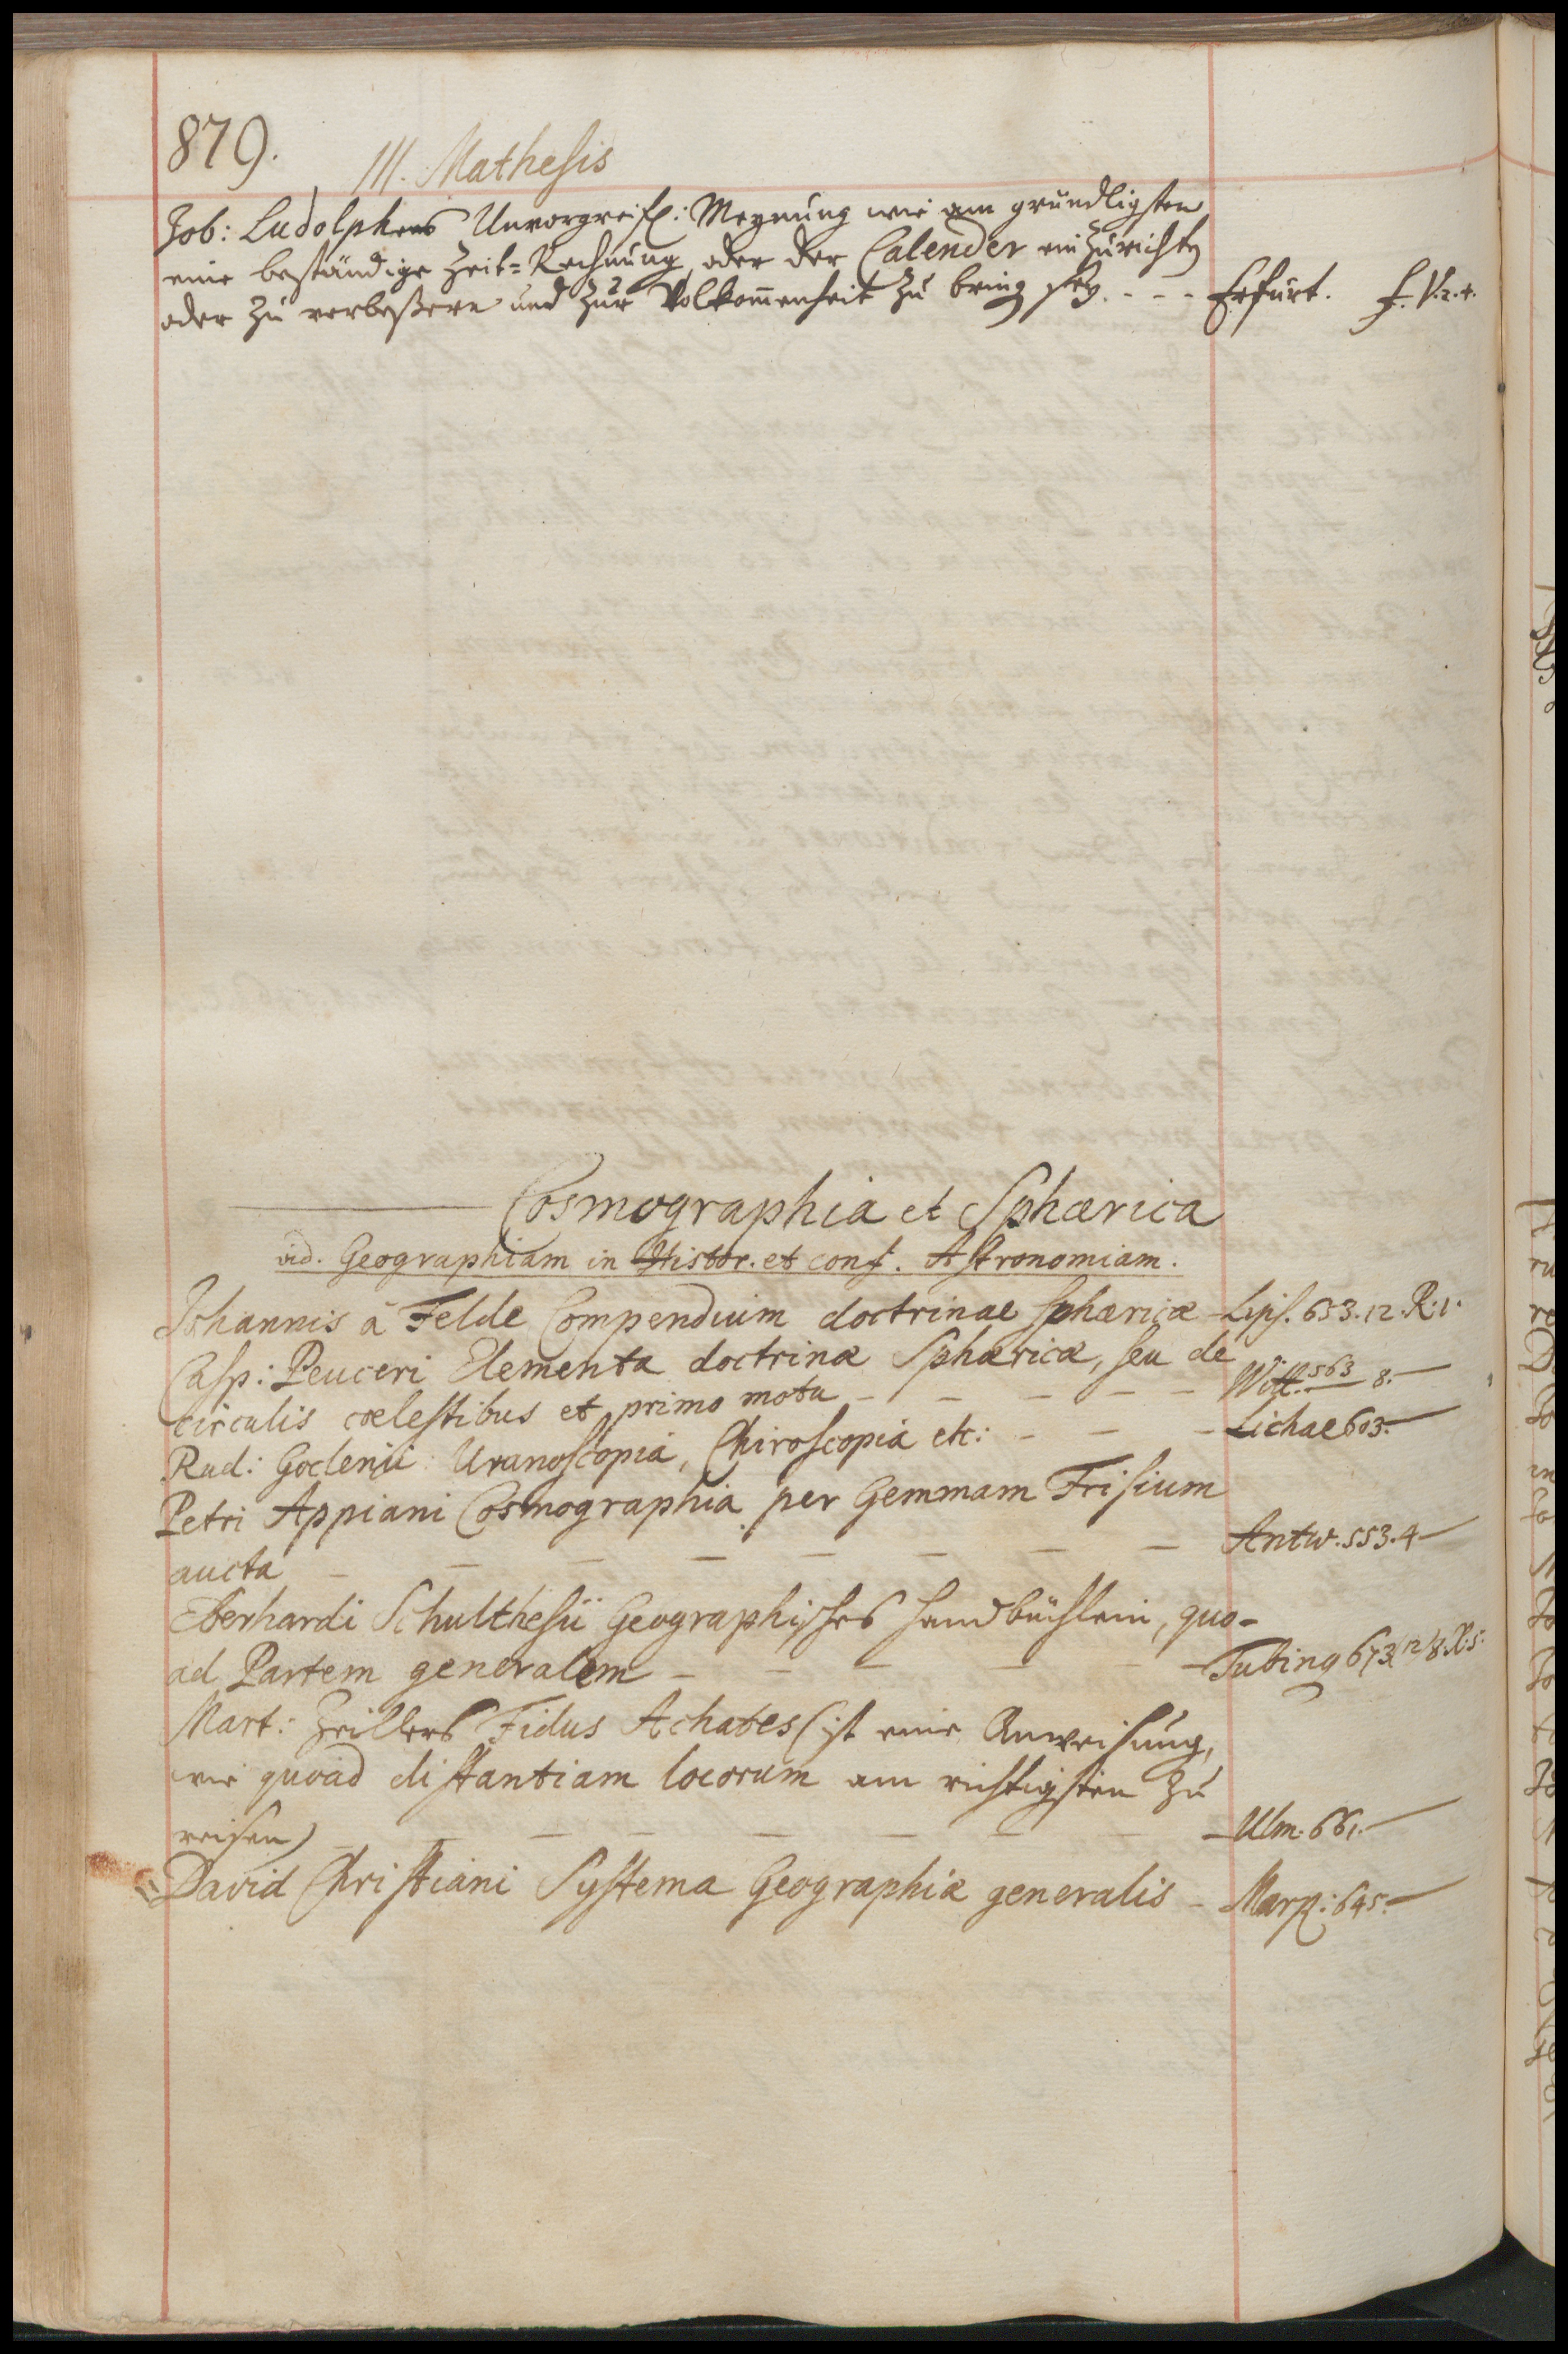 879.
III. Mathesis
Job: Ludolphens Unvorgreifl: Meynung wie am gründligsten
eine beständige Zeit-Rechnung, oder der Calender einzurichten
oder zu verbeßern und zur Volkom̃enheit zu bring sey. - - - Erfurt.
Cosmographia et Sphærica
vid. Geographiam in Histor. et conf. Astronomiam.
Johannis à Felde Compendium doctrinae sphæricæ - Lips. 653. 12. R: 1.
Casp: Peuceri Elementa doctrinæ Sphæricæ, seu de
circulis cœlestibus et primo motu - - - - - Witt. 563 8. -
Rud: Goclenii Uranoscopia, Chiroscopia etc: - - - Lichae 603. -
Petri Appiani Cosmographia per Gemmam Frisium
aucta - - - - - - - - Antw. 553. 4 -
Eberhardi Schulthesii Geographisches Handbüchlein, quo-
ad Partem generalem - - - - - Tubing 673. (12) 8. R: 5.
Mart: Zeillers Fidus Achates (ist eine Anweisung,
wie quoad distantiam locorum am richtigsten zu
reisen) - - - - - - - Ulm. 661. -
David Christiani Systema Geographiæ generalis - Marp: 645. -